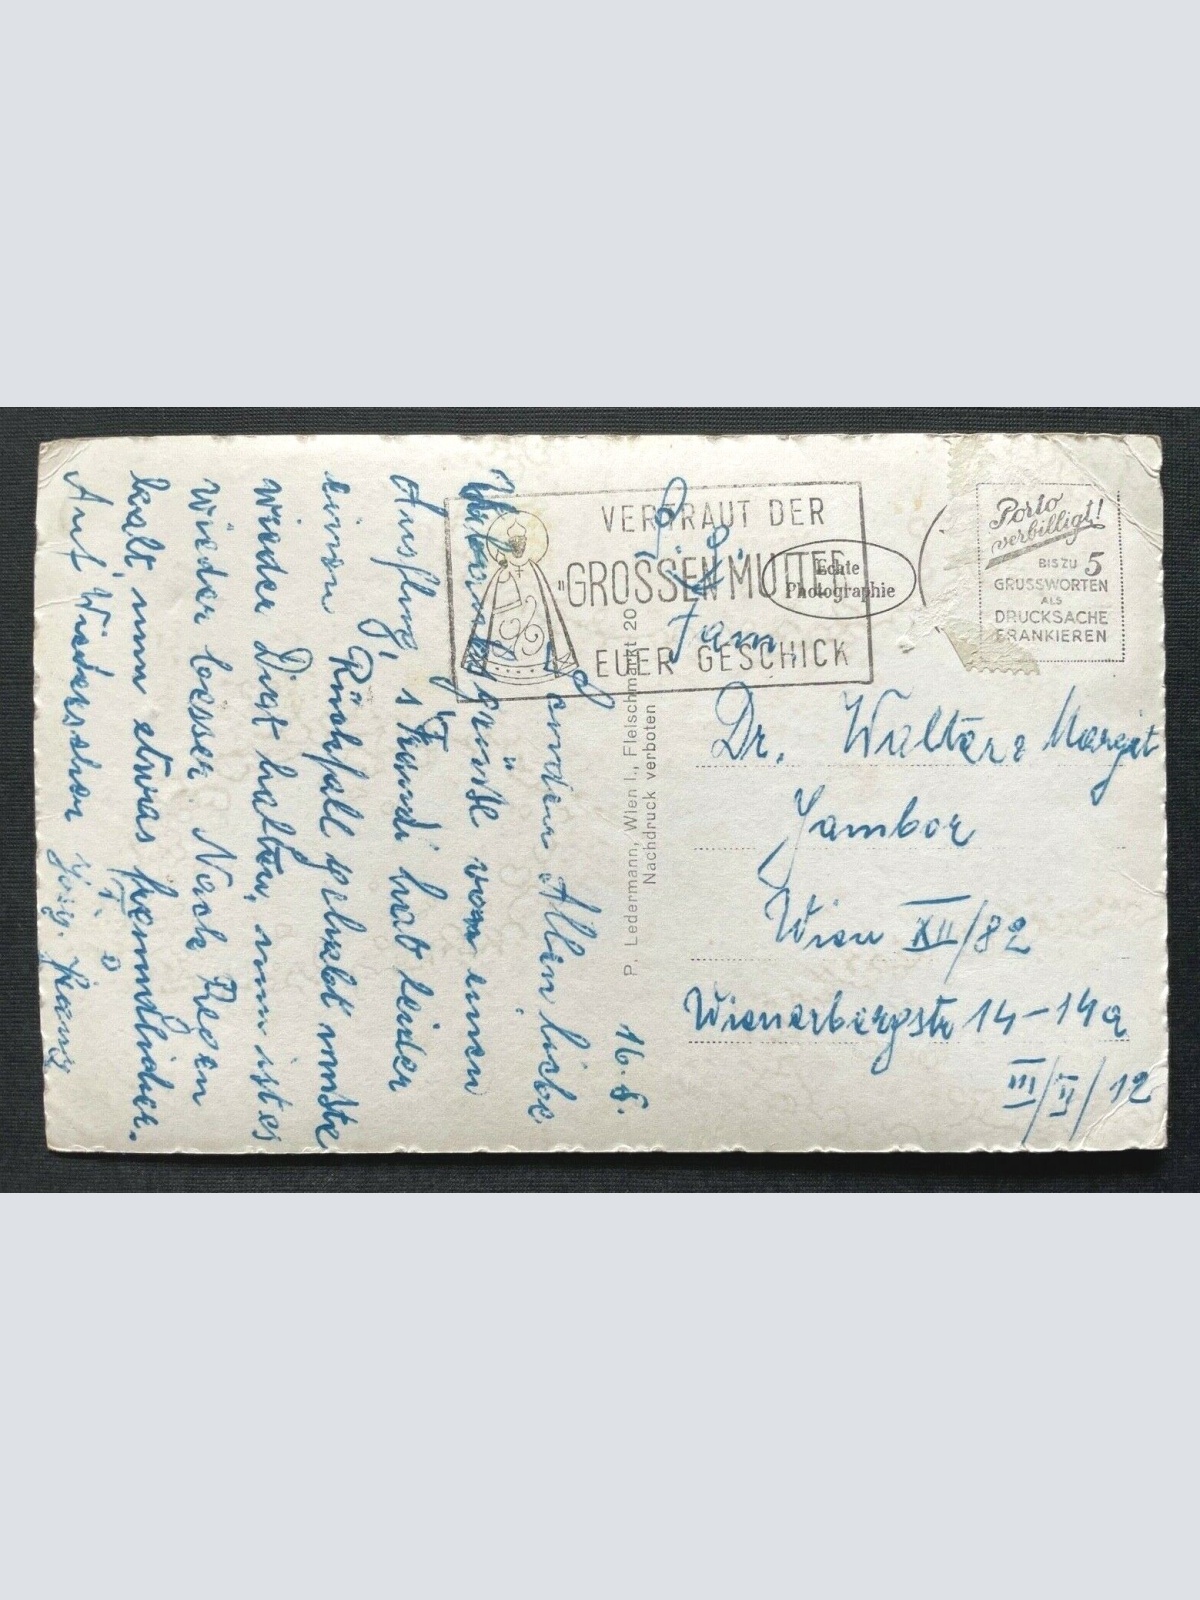 16. 8.
Senden Allen liebe
grüße von einen
Ausflug, 's Hannerl hat leider
einen Rückfall gehabt mußte
wieder Diät halten, nun ist es
wieder besser. Nach Regen
kalt, nun etwas
Auf Wiedersehen
VERTRAUT DER
"GROSSEN MUTTER
EUER GESCHICK
Echte
Photographie
Porto
verbilligt!
BIS ZU 5
GRUSSWORTEN
ALS
DRUCKSACHE
FRANKIEREN
P. Ledermann, Wien I., Fleischmarkt 20
Nachdruck verboten
Fam
Dr. Walter & Margit
Jambor
Wien XII/82
Wienerbergstr 14-14a
III/II/12